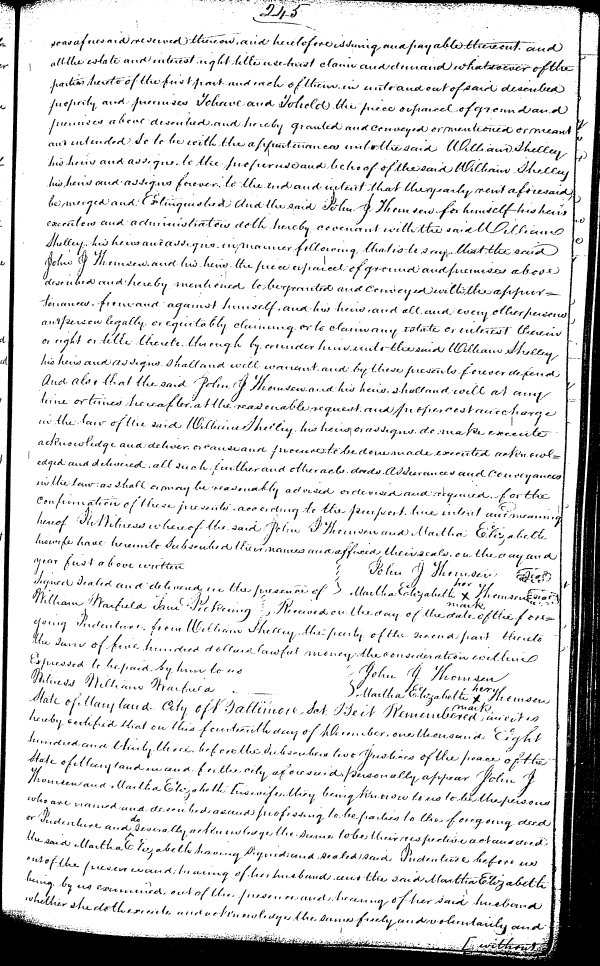 245
as aforesaid reserved thereon, and heretofore issuing and payable thereout and
all the estate and interest right title use trust claim and demand whatsoever of the
parties hereto of the first part and each of them, in unto and out of said described
property and premises To have and To hold the piece or parcel of ground and
premises above described, and hereby granted and conveyed or mentioned or meant
and intended so to be with the appurtenances unto the said William Shelley
his heirs and assigns, to the proper use and behoof of the said William Shelley
his heirs and assigns forever, to the end and intent that the yearly rent aforesaid
be merged and Extinguished And the said John J Thomsen for himself his heirs
executors and administrators doth hereby covenant with the said William
Shelley, his heirs and assigns, in manner following, that is to say, that the said
John J Thomsen and his heirs, the piece or parcel of ground and premises above
described and hereby mentioned to be granted and conveyed with the appur=
tenances, from and against himself, and his heirs, and all and every other persons
or person legally, or equitably claiming or to claim any estate or interest therein
or right or title thereto, through by, or under him, unto the said William Shelley
his heirs and assigns, shall and will warrant, and by these presents, forever defend
And also that the said John J Thomsen and his heirs, shall and will at any
time or times hereafter, at the reasonable request, and proper cost and charge
in the law of the said William Shelley, his heirs or assigns, do, make execute
acknowledge and deliver, or cause and procure to be done made executed acknowl=
edged and delivered, all such further and other acts, deeds, Assurances and Conveyances
in the law as shall or may be reasonably advised or devised and required, for the
confirmation of these presents, according to the purport, true intent and meaning
hereof In Witness whereof the said John J Thomsen and Martha Elizabeth
his wife have hereunto Subscribed their names and affixed their seals, on the day and
year first above written } John J Thomsen Seal
Signed Sealed and delivered in the presence of } Martha Elizabeth her x mark Thomsen Seal
William Warfield Pickering } Received on the day of the date of the fore=
going Indenture, from William Shelley, the party of the second part thereto
the sum of five hundred dollars lawful money, the consideration within
Expressed to be paid by him to us } John J Thomsen
Witness William Warfield } Martha Elizabeth her x mark Thomsen
State of Maryland City of Baltimore Sct Be it Remembered, and it is
hereby certified that on this fourteenth day of December, one thousand Eight
hundred and thirty three, before the Subscribers two Justices of the peace of the
State of Maryland in and for the city aforesaid personally appear John J
Thomsen and Martha Elizabeth his wife, they being known to us to be the persons
who are named and described as and professing to be parties to the foregoing deed
or Indenture and do severally acknowledge the same to be their respective act and deed
the said Martha Elizabeth having signed and sealed said Indenture before us
out of the presence and hearing of her husband, and the said Martha Elizabeth
being by us examined out of the presence and hearing of her said husband
whether she doth execute and acknowledge the same freely and voluntarily and
[without